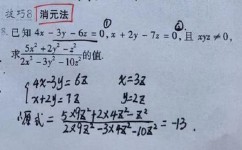 技巧8 消元法
已知4x-3y-6z=0,① x+2y-7z=0,② 且 xyz≠0,
求 (5x²+2y²-z²)/(2x²-3y²-10z²) 的值.
{4x-3y=6z x=3z
x+2y=7z y=2z
原式= (5×9z²+2×4z²-z²)/(2×9z²-3×4z²-10z²) =-13.